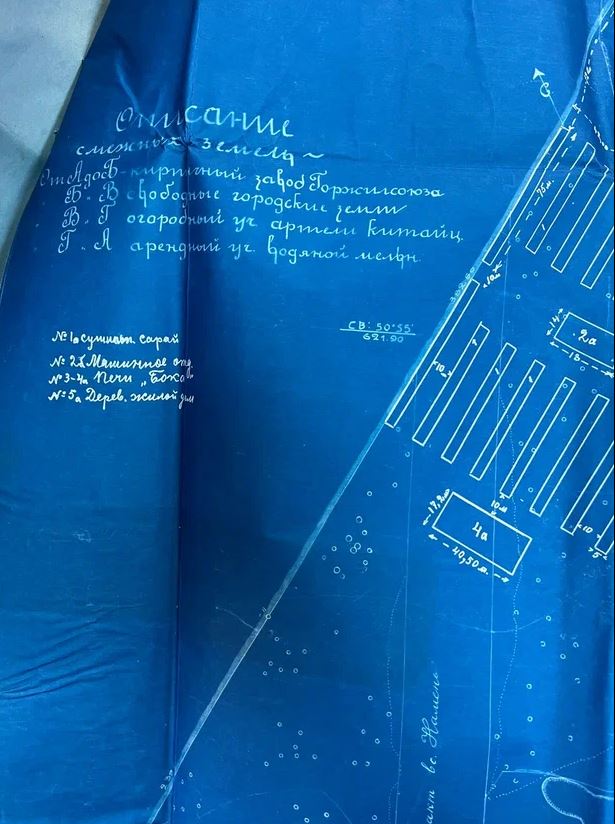 Описание
смежных земель
От А до Б - кирпичный завод Горжилсоюза
Б. В свободные городские земли
В. Г огородный уч. артели китайц.
Г. А арендный уч. водяной мельн.
СВ: 50°55'
621.90
№ 1а сушильн. сарай
№ 2а Машинное отд
№ 3-4а Печи „Бокс
№ 5а Дерев. жилой дом
15м
10м
14
2а
18
10
17,2
10м
4а
40,50 м.
10
5